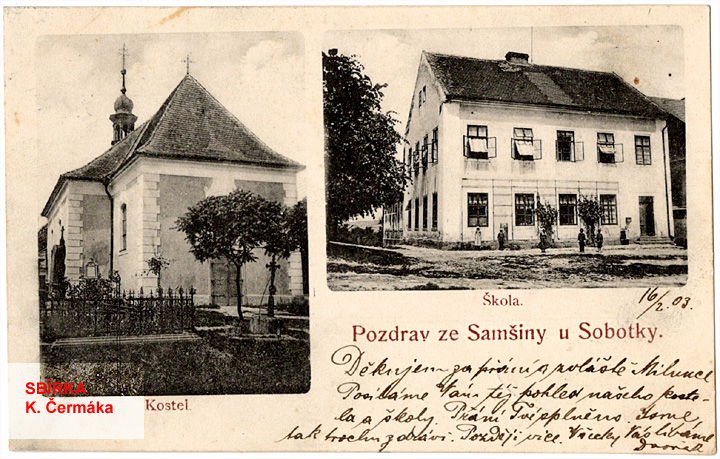 Škola.
16/2.03.
Pozdrav ze Samšiny u Sobotky.
Děkujem za přání a zvláště Milunce
Posíláme Vám též pohled našeho koste-
la a školy. Přání Tvé splněno.
tak trochu zdrávi. Později více. Všecky Vás líbáme
Dvořák
SBÍRKA
K. Čermáka
Kostel.